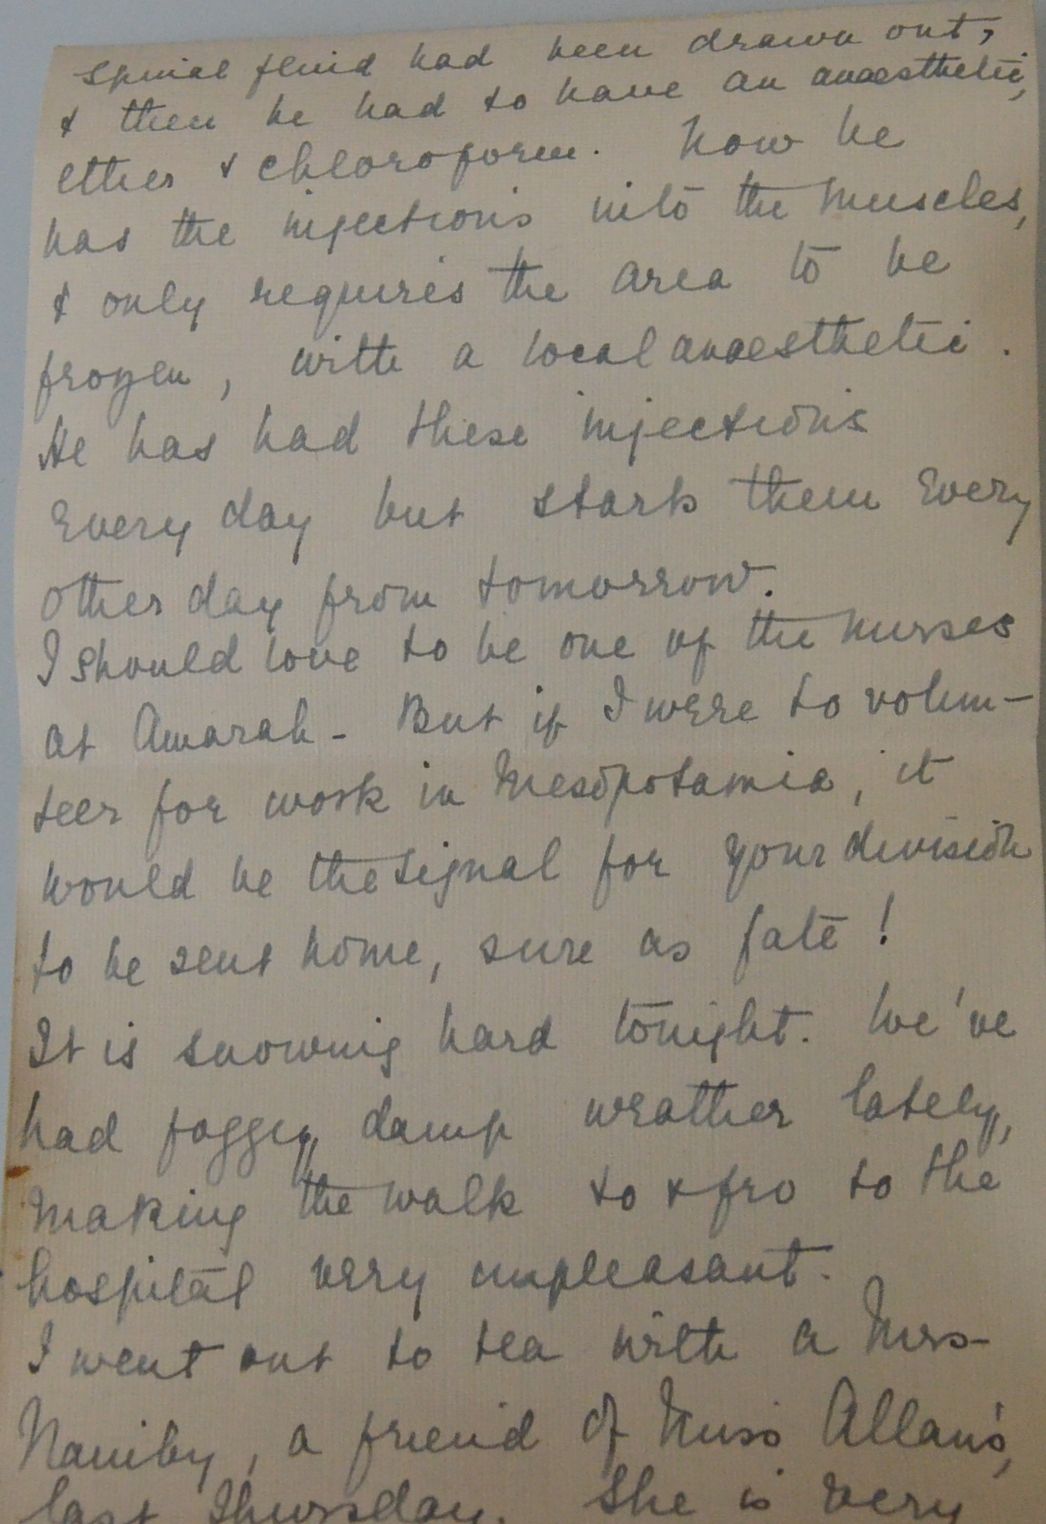 spinal fluid had been drawn out,
& then he had to have an anaesthetic,
ether & chloroform. Now he
has the injections into the muscles,
& only requires the area to be
frozen, with a local anaesthetic.
He has had these injections
every day but starts them every
other day from tomorrow.
I should love to be one of the nurses
at Amarah - But if I were to volun-
teer for work in Mesopotamia, it
would be the signal for your division
to be sent home, sure as fate!
It is snowing hard tonight. We've
had foggy, damp weather lately,
making the walk to & fro to the
hospital very unpleasant.
I went out to tea with a Mrs
, a friend of Miss Allan's,
last Thursday. She is very